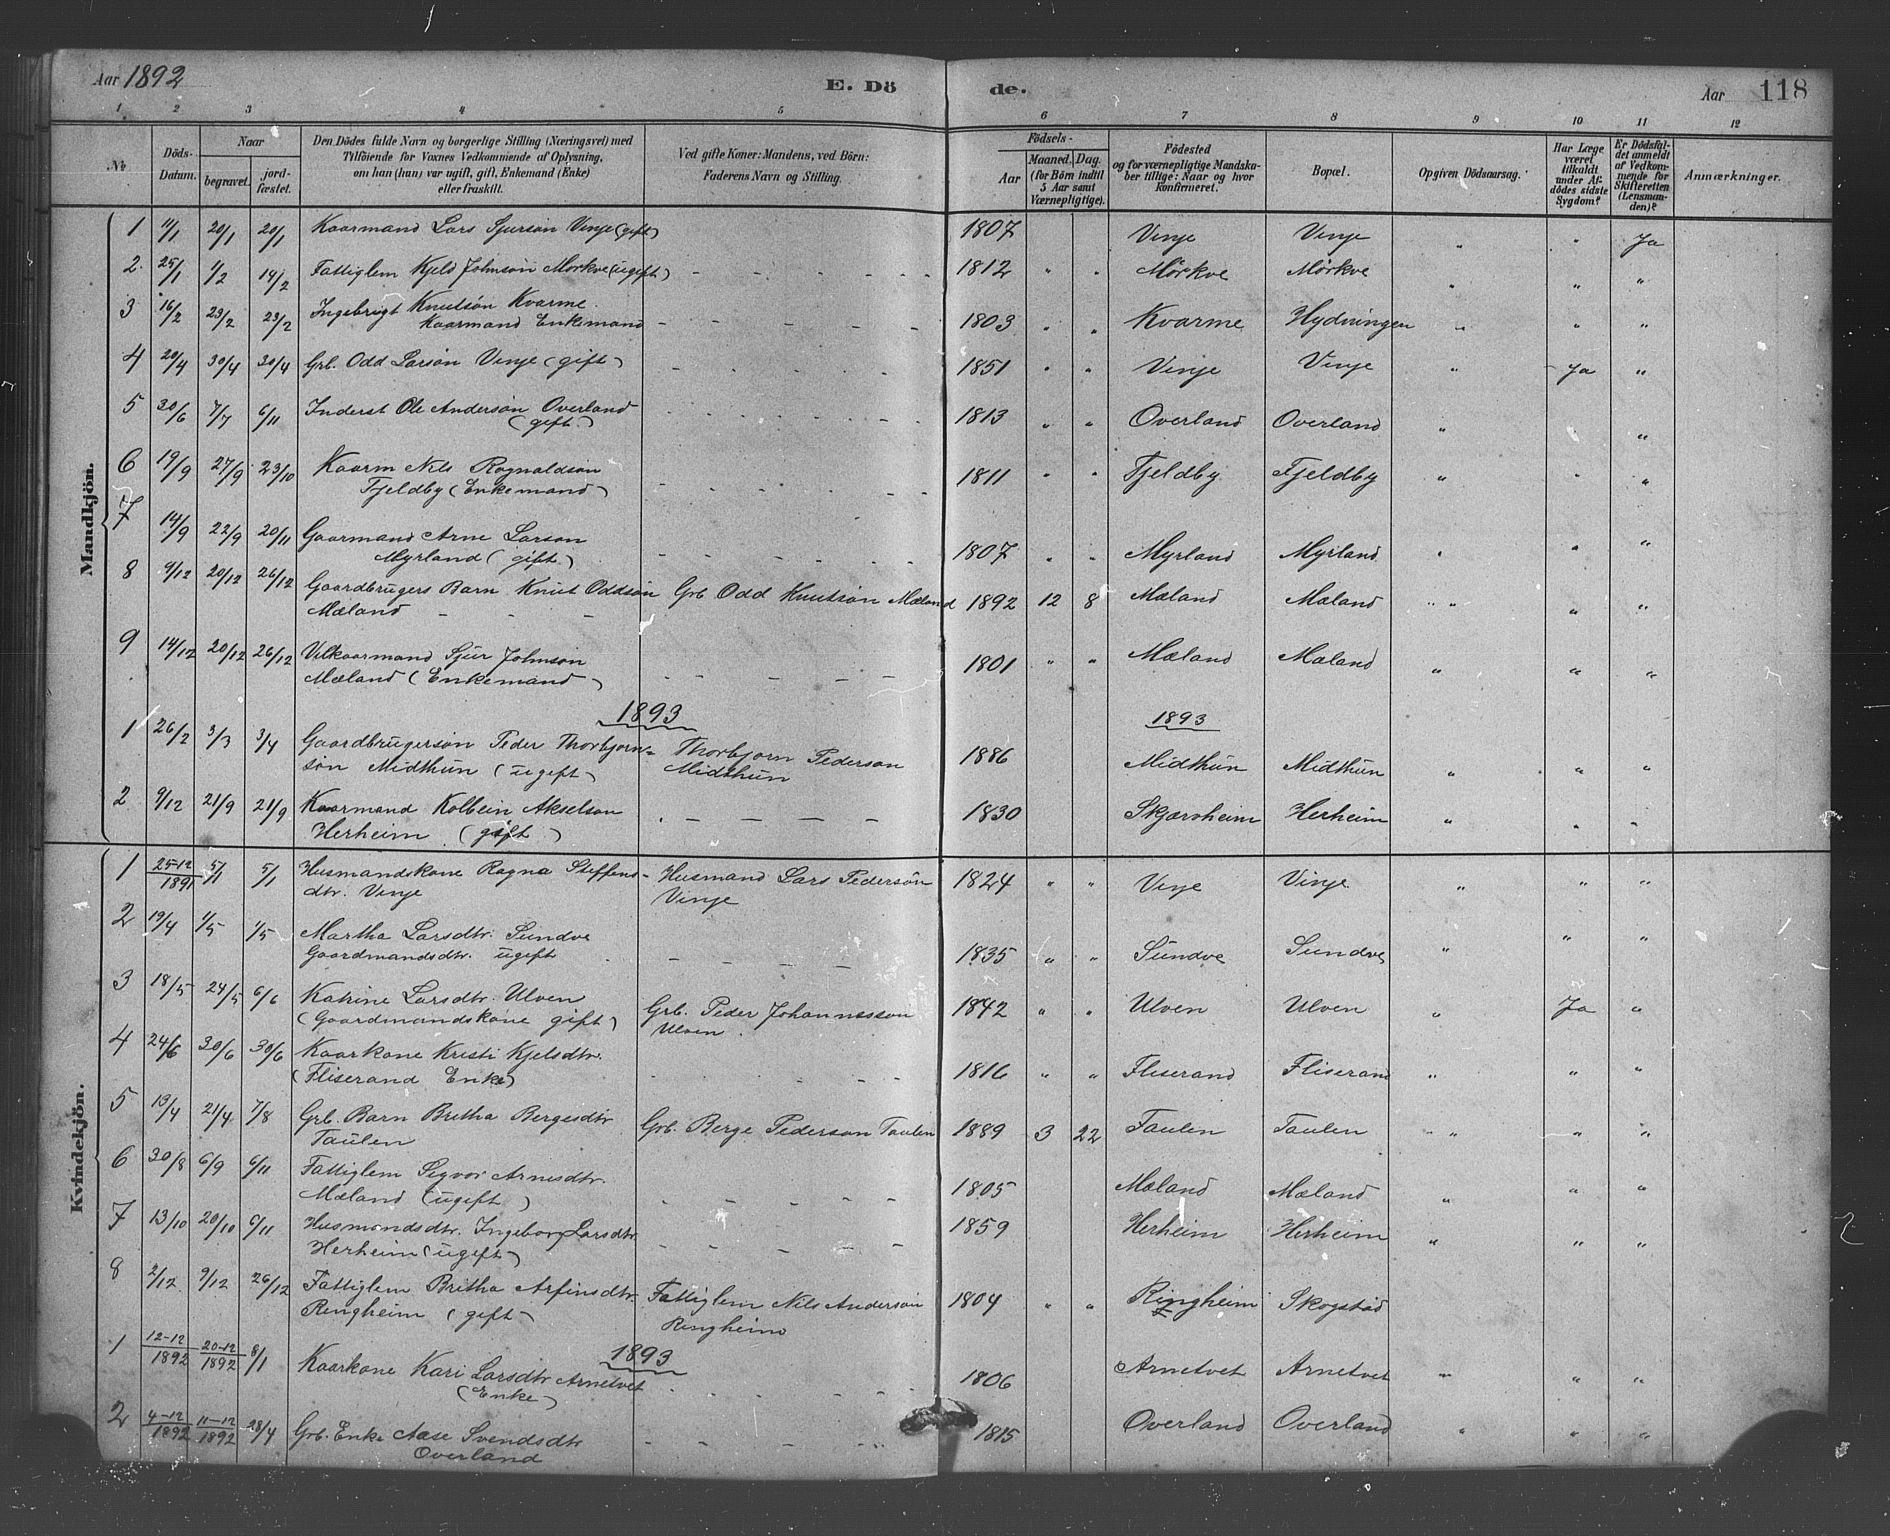 Aar 1892 E. Dö de. Aar 118
1 2 3 4 5 6 7 8 9 10 11 12
No.
Döds-Datum.
Naar
begravet.
jord-fæstet.
Den Dödes fulde Navn og borgerlige Stilling (Næringsvei) med
Tilföiende for Voxnes Vedkommende af Oplysning,
om han (hun) var ugift, gift, Enkemand (Enke)
eller fraskilt.
Ved gifte Koner: Mandens, ved Börn:
Faderens Navn og Stilling.
Födsels-
Aar
Maaned. Dag.
(for Börn indtil
5 Aar samt
Værnepligtige).
Födested
og for værnepligtige Mandska-
ber tillige: Naar og hvor
konfirmeret.
Bopæl.
Opgiven Dödsaarsag.
Har Læge
været
tilkaldt
under Af-
dödes sidste
Sygdom?
Er Dödsfal-
det anmeldt
af Vedkom-
mende for
Skifteretten
(Lensman-
den)?
Anmærkninger.
Mandkjön.
1 11/1 20/1 20/1 Kaarmand Lars Sjursön Vinje (gift) 1807 Vinje Vinje " " Ja
2. 25/1 1/2 14/2 Fattiglem Kjeld Johnsön Mørkve (ugift) - - - - - 1812 " " Mørkve Mørkve " " "
3 16/2 23/2 23/2 Ingebrigt Knutsön Kvarme
Kaarmand Enkemand - - - - - 1803 " " Kvarme Hydvningen " " "
4 20/4 30/4 30/4 Grb. Odd Larsön Vinje (gift) - - - - 1851 " " Vinje Vinje " Ja "
5 30/6 7/7 6/11 Inderst Ole Andersön Overland
(gift) 1813 " " Overland Overland " "
6 19/9 27/9 23/10 Kaarm Nils Rognaldsön
Fjeldby (Enkemand) - - - - - 1811 " " Fjeldby Fjeldby " " "
7 14/9 22/9 20/11 Gaarmand Arne Larson
Myrland (gift) - - - - - 1807 " " Myrland Myrland " " "
8 9/12 20/12 26/12 Gaardbrugers Barn Knut Oddsön Grb Odd Knutsön Mæland 1892 12 8 Mæland Mæland " " " "
Mæland - - -
9 14/12 20/12 26/12 Vilkaarmand Sjur Johnsön
Mæland (Enkemand) - - - - - 1801 " " Mæland Mæland " " "
1893 1893
1 26/2 3/3 3/4 Gaardbrugersön Peder Thorbjorn= Thorbjorn Pederson 1886 Midthun Midthun " " "
sön Midthun (ugift) Midthun
2 9/12 21/9 21/9 Kaarmand Kolbein Akselson
Herheim (gift) - - - - 1830 Skjærvheim Herheim " " "
Kvindekjön.
1 25-12/1891 5/1 5/1 Husmandskone Ragna Steffens- Husmand Lars Pedersön 1824 " " Vinje Vinje " " "
dtr. Vinje Vinje
2 19/4 1/5 1/5 Martha Larsdtr. Sundve
Gaardmandsdtr. ugift - - - - 1835 " " Sundve Sundve " " "
3 18/5 24/5 6/6 Katrine Larsdtr. Ulven Grb. Peder Johannesson 1842 " " Ulven Ulven " Ja "
(Gaardmandskone gift) Ulven
4 24/6 30/6 30/6 Kaarkone Kristi Kjelsdtr.
(Fliserand Enke) - - - - 1816 " " Fliserand Fliserand " " "
5 13/4 21/4 7/8 Grb. Barn Britha Bergesdtr Grb. Berge Pederson Taulen 1889 3 22 Taulen Taulen " " " "
Taulen
6 30/8 6/9 6/11 Fattiglem Sigvor Arnesdtr.
Mæland (ugift) - - - - 1805 Mæland Mæland " " "
7 13/10 20/10 6/11 Husmandsdtr. Ingeborg Larsdtr 1859 Herheim Herheim " " "
Herheim (ugift) - - - - -
8 2/12 9/12 26/12 Fattiglem Britha Arfinsdtr. Fattiglem Nils Andersön 1804 " " Ringheim Skogstad
Ringheim (gift) Ringheim
1893
1 12-12/1892 20-12/1892 8/1 Kaarkone Kari Larsdtr Arnetvet
(Enke) - - - - 1806 Arnetvet Arnetvet " " "
2 4-12/1892 11-12/1892 28/4 Grb. Enke Aase Svendsdtr - - - - 1815 Overland Overland " " "
Overland